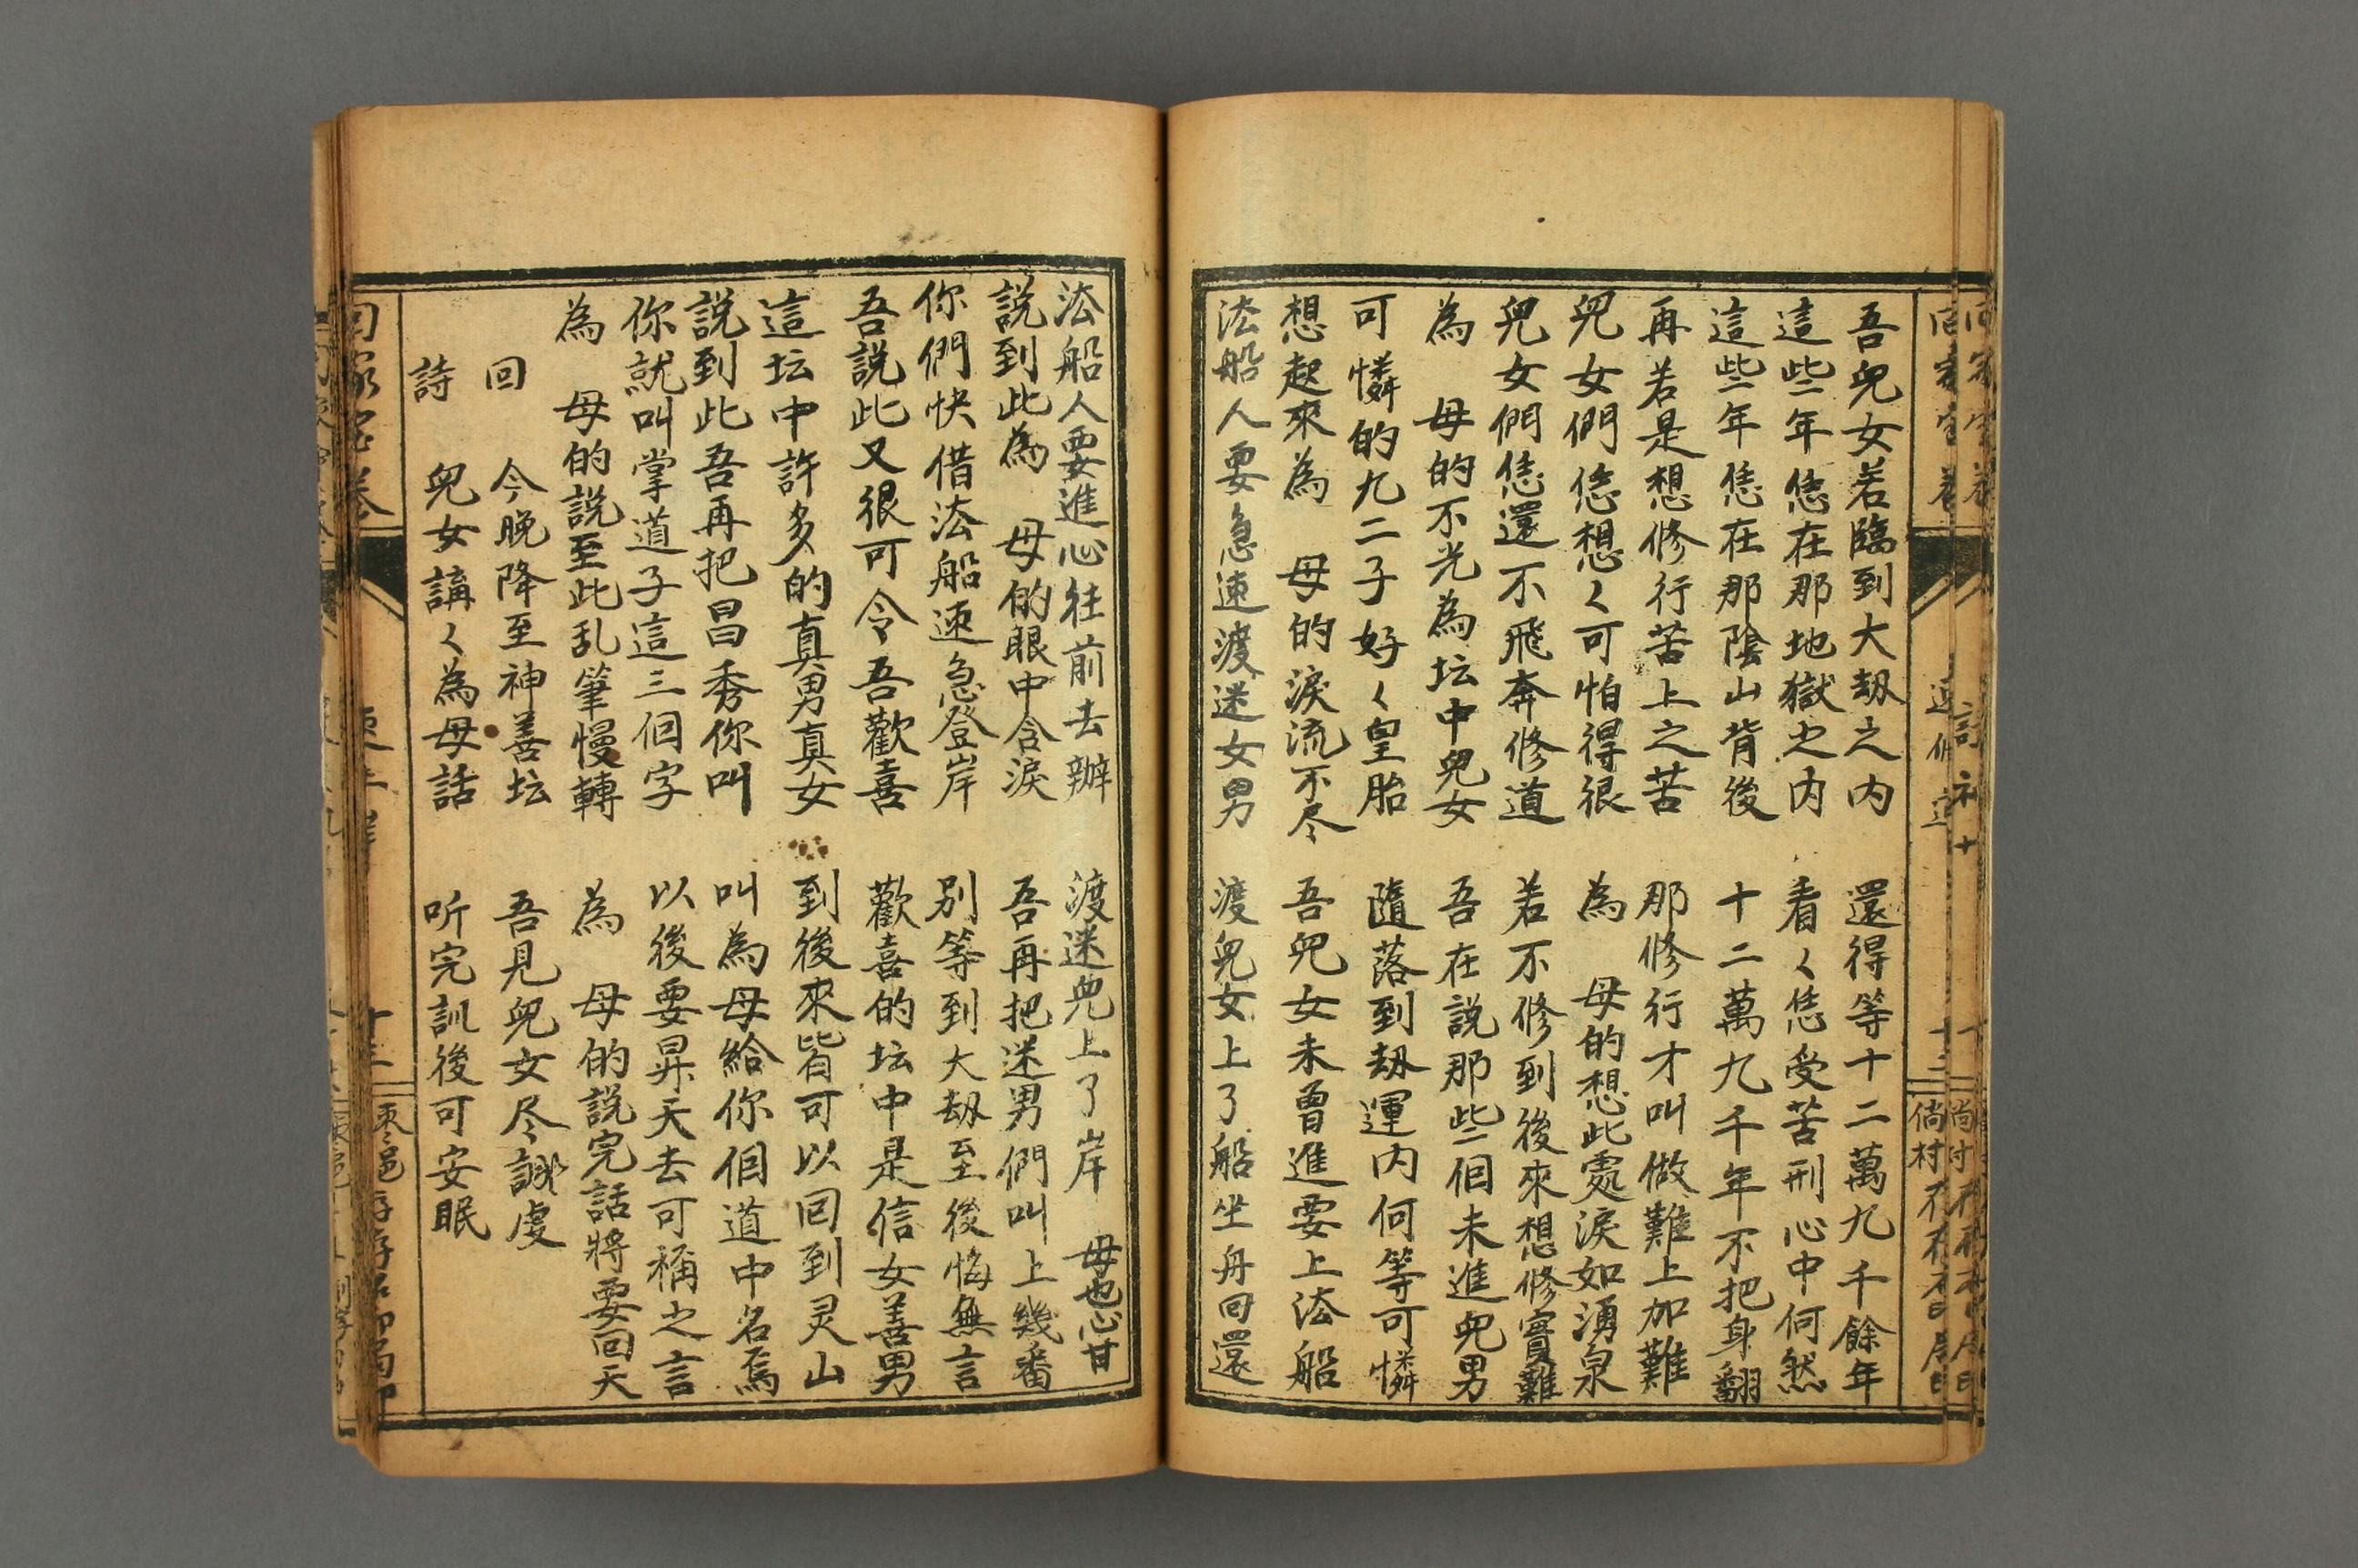 吾兒女若臨到大刼之內　還得等十二萬九千餘年
這些年恁在那地獄之內　看く恁受苦刑心中何然
這些年恁在那陰山背後　十二萬九千年不把身翻
再若是想修行苦上之苦　那修行才叫做難上加難
兒女們恁想く可怕得很　為　母的想此處淚如湧泉
兒女們恁還不飛奔修道　若不修到後來想修實難
為　母的不光為坛中兒女　吾在説那些個未進兒男
可憐的九二子好く皇胎　隨落到刼運内何等可憐
想起來為　母的淚流不尽　吾兒女未曾進要上法船
法船人要急速渡迷女男　渡兒女上了船坐舟回還
法船人要進心往前去辦　渡迷兒上了岸　母也心甘
説到此為　母的眼中含淚　吾再把迷男們叫上幾番
你們快借法船速急登岸　别等到大刼至後悔無言
吾説此又很可令吾歡喜　歡喜的坛中是信女善男
這坛中許多的真男真女　到後來皆可以回到灵山
説到此吾再把昌秀你叫　叫為母給你個道中名焉
你就叫掌道子這三個字　以後要昇天去可稱之言
為　母的説至此乱筆慢轉　為　母的説完話將要回天
回　今晚降至神善坛　吾見兒女尽誠虔
詩　兒女講く為母話　听完訓後可安眠